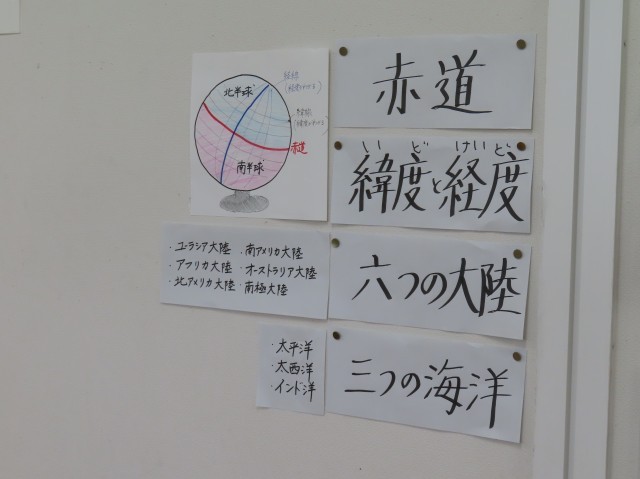 北半球
経線
(経度がわかる)
緯線
(緯度がわかる)
赤道
南半球
赤道
いど けいど
緯度と経度
・ユーラシア大陸 ・南アメリカ大陸
・アフリカ大陸 ・オーストラリア大陸
・北アメリカ大陸 ・南極大陸
六つの大陸
・太平洋
・大西洋
・インド洋
三つの海洋